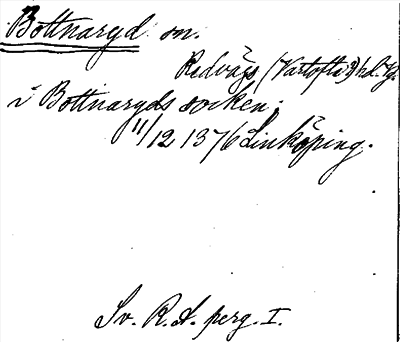 Bottnaryd sn.
Redvägs (Vartofta?) hd. Vg.
i Bottnaryds socken;
11/12 1376 Linköping.
Sv. R.A. perg. I.